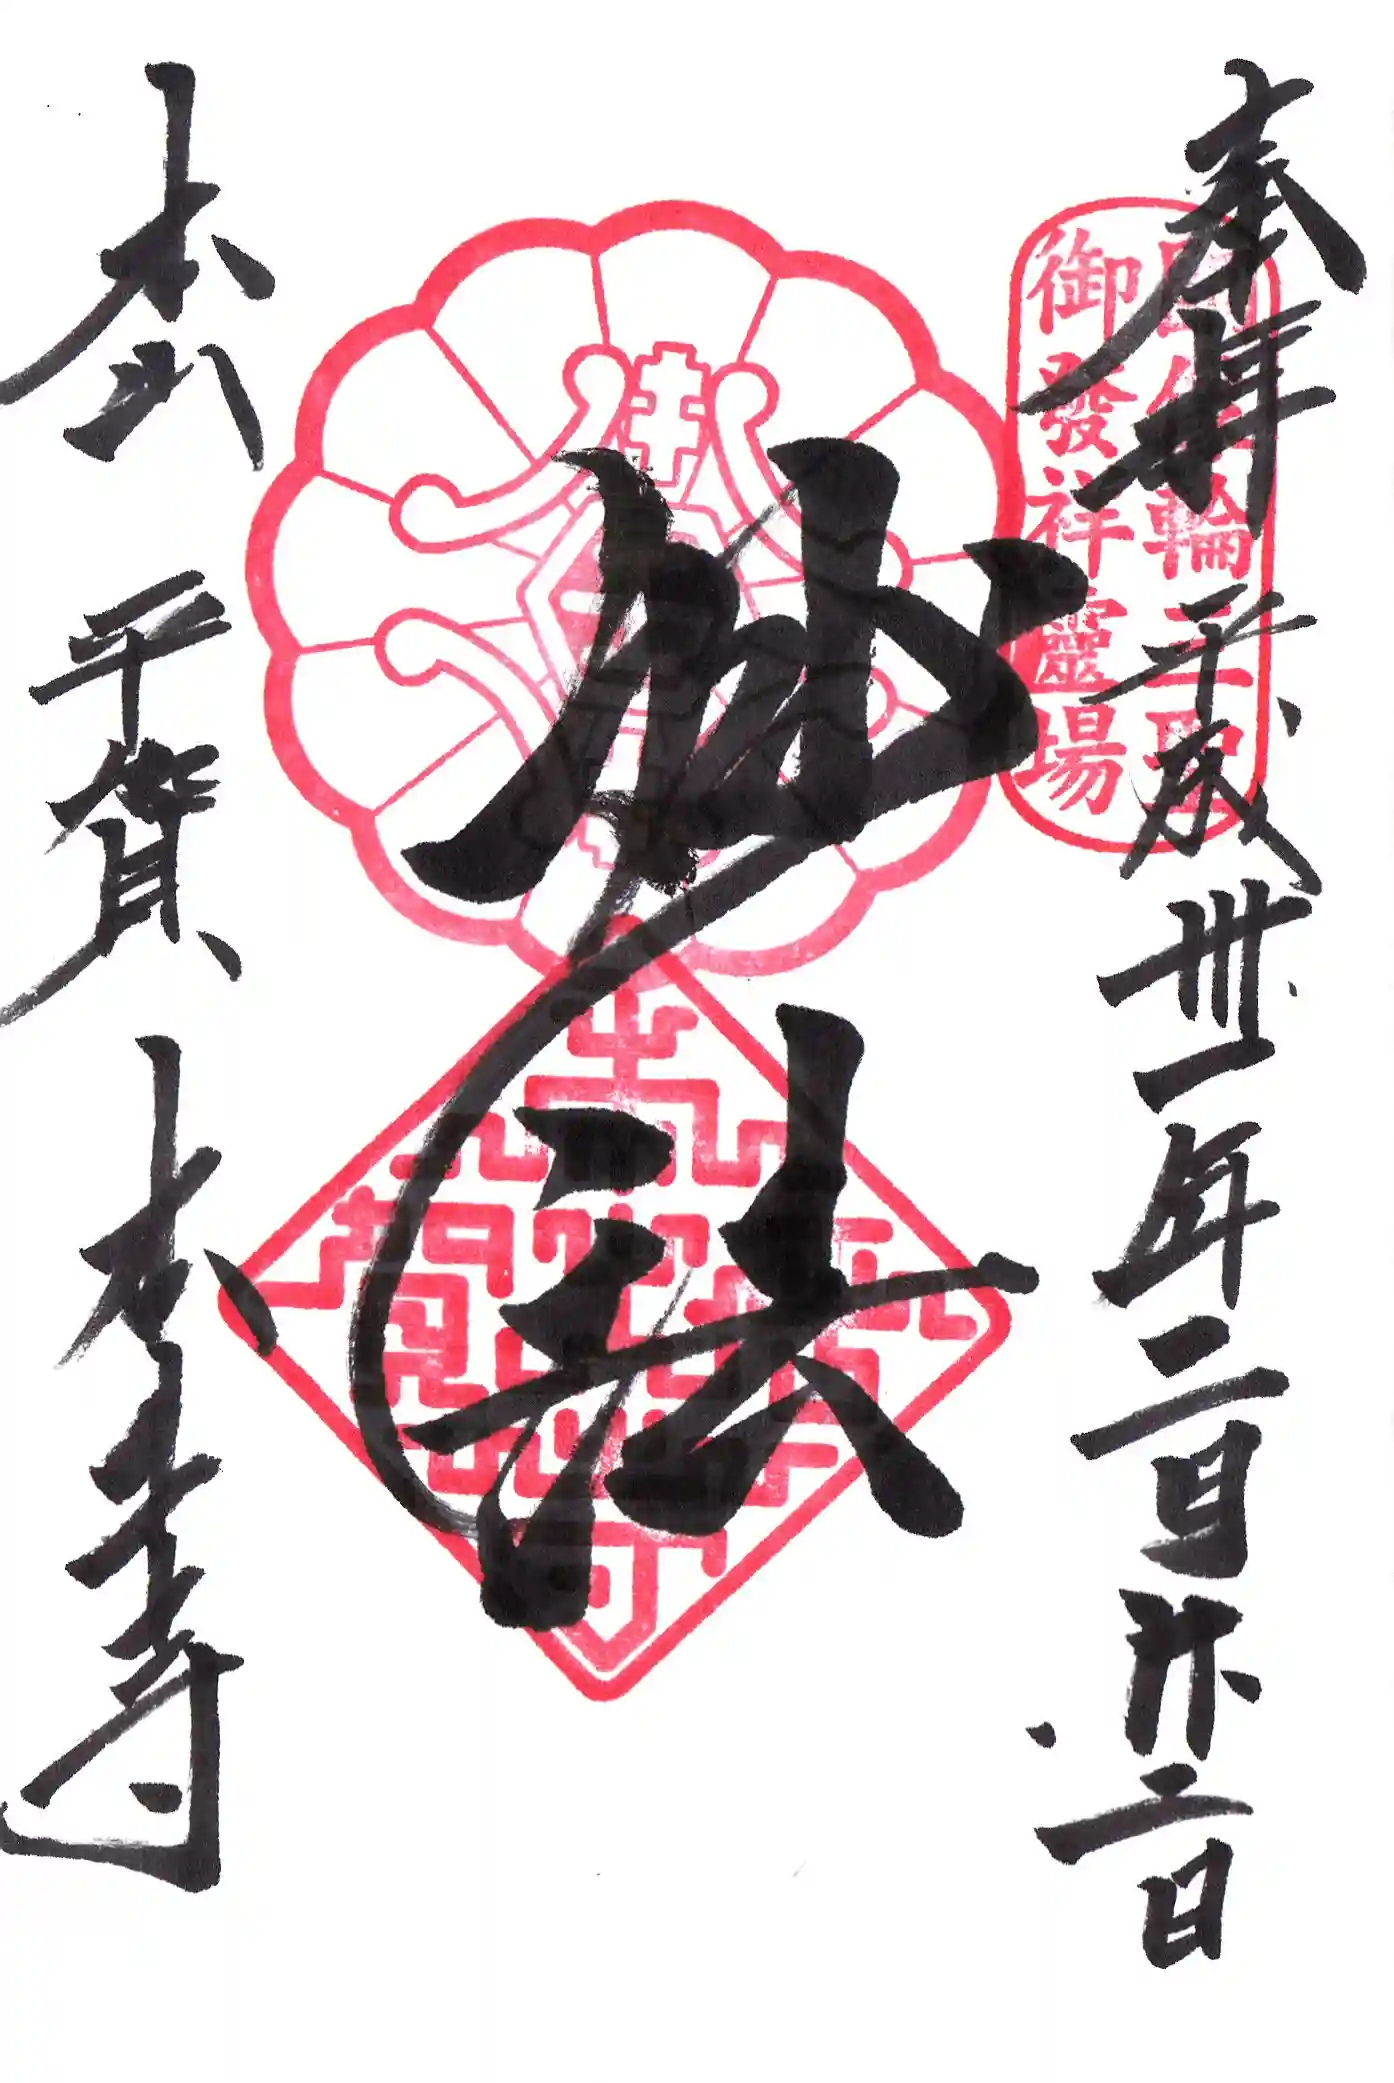 奉拝 平成卅一年二月廿二日
朗像輪三聖
御發祥靈場
妙法
本山 平賀 本土寺